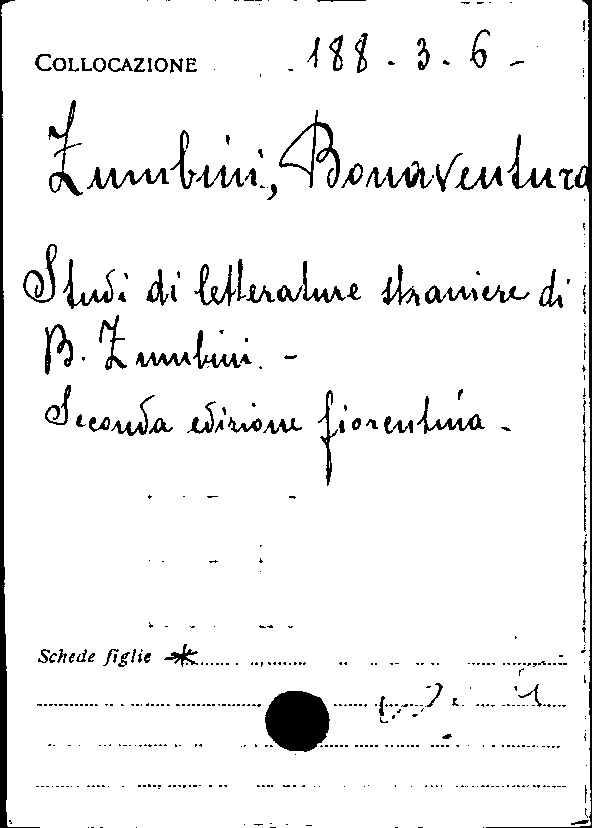 COLLOCAZIONE 188.3.6-
Zumbini, Bonaventura
Studi di letterature straniere di
B. Zumbini. -
Seconda edizione fiorentina -
Schede figlie *